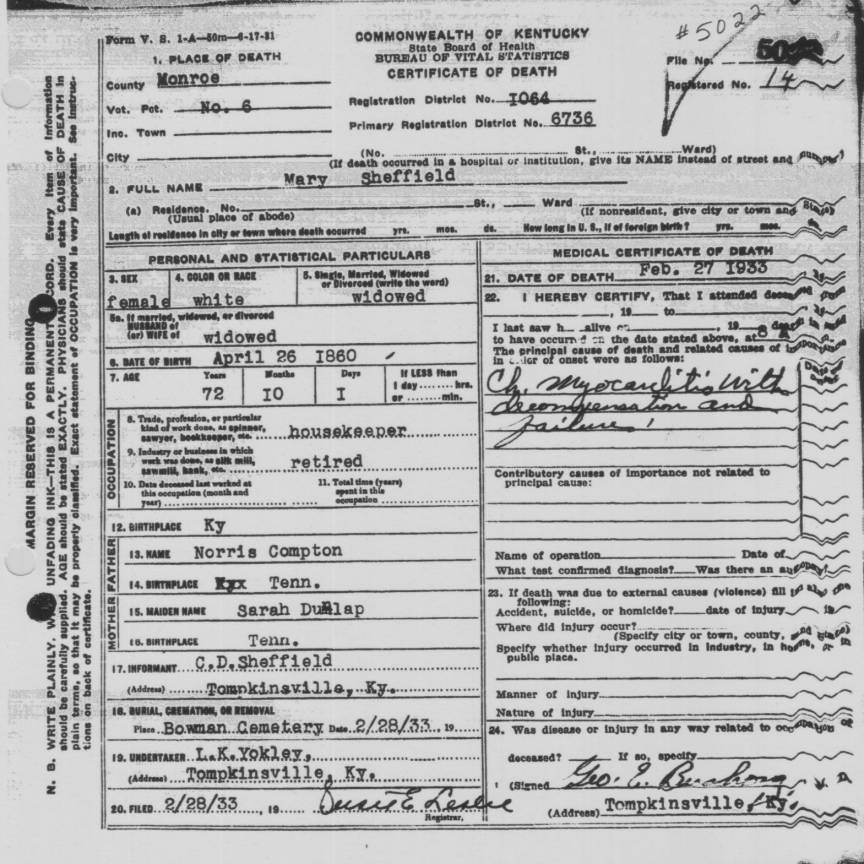 #5022
Form V. S. 1-A—50m—6-17-31
COMMONWEALTH OF KENTUCKY
State Board of Health
BUREAU OF VITAL STATISTICS
CERTIFICATE OF DEATH
File No.
Registered No. 14
1. PLACE OF DEATH
County Monroe
Vot. Pct. No. 6
Inc. Town
City
Registration District No. I064
Primary Registration District No. 6736
(No. St., Ward)
(If death occurred in a hospital or institution, give its NAME instead of street and number)
2. FULL NAME Mary Sheffield
(a) Residence. No. St., Ward
(Usual place of abode) (If nonresident, give city or town and State)
Length of residence in city or town where death occurred yrs. mos. ds. How long in U. S., if of foreign birth? yrs. mos.
PERSONAL AND STATISTICAL PARTICULARS
3. SEX 4. COLOR OR RACE 5. Single, Married, Widowed
or Divorced (write the word)
female white widowed
5a. If married, widowed, or divorced
HUSBAND of
(or) WIFE of widowed
6. DATE OF BIRTH April 26 I860
7. AGE Years Months Days If LESS than
1 day hrs.
72 I0 I or min.
OCCUPATION
8. Trade, profession, or particular
kind of work done, as spinner,
sawyer, bookkeeper, etc. housekeeper
9. Industry or business in which
work was done, as silk mill,
sawmill, bank, etc. retired
10. Date deceased last worked at
this occupation (month and
year)
11. Total time (years)
spent in this
occupation
12. BIRTHPLACE Ky
FATHER
13. NAME Norris Compton
14. BIRTHPLACE Tenn.
MOTHER
15. MAIDEN NAME Sarah Dunlap
16. BIRTHPLACE Tenn.
17. INFORMANT C.D.Sheffield
(Address) Tompkinsville, Ky.
18. BURIAL, CREMATION, OR REMOVAL
Place Bowman Cemetary Date 2/28/33, 19
19. UNDERTAKER L.K.Yokley,
(Address) Tompkinsville, Ky.
20. FILED 2/28/33, 19 Susie E Leslie
Registrar.
MEDICAL CERTIFICATE OF DEATH
21. DATE OF DEATH Feb. 27 I933
22. I HEREBY CERTIFY, That I attended deceased from
, 19 to
I last saw h alive on , 19 death is said
to have occurred on the date stated above, at 8
The principal cause of death and related causes of importance
in order of onset were as follows:
Ch. Myocarditis with
decompensation and
failure
Contributory causes of importance not related to
principal cause:
Name of operation Date of
What test confirmed diagnosis? Was there an autopsy?
23. If death was due to external causes (violence) fill in also the
following:
Accident, suicide, or homicide? date of injury
Where did injury occur?
(Specify city or town, county, and State)
Specify whether injury occurred in industry, in home, or in
public place.
Manner of injury
Nature of injury
24. Was disease or injury in any way related to occupation of
deceased? If so, specify
(Signed Geo. E. Bushong
(Address) Tompkinsville, Ky.
MARGIN RESERVED FOR BINDING
N. B. WRITE PLAINLY, UNFADING INK—THIS IS A PERMANENT RECORD. Every item of information
should be carefully supplied. AGE should be stated EXACTLY. PHYSICIANS should state CAUSE OF DEATH in
plain terms, so that it may be properly classified. Exact statement of OCCUPATION is very important. See instruc-
tions on back of certificate.